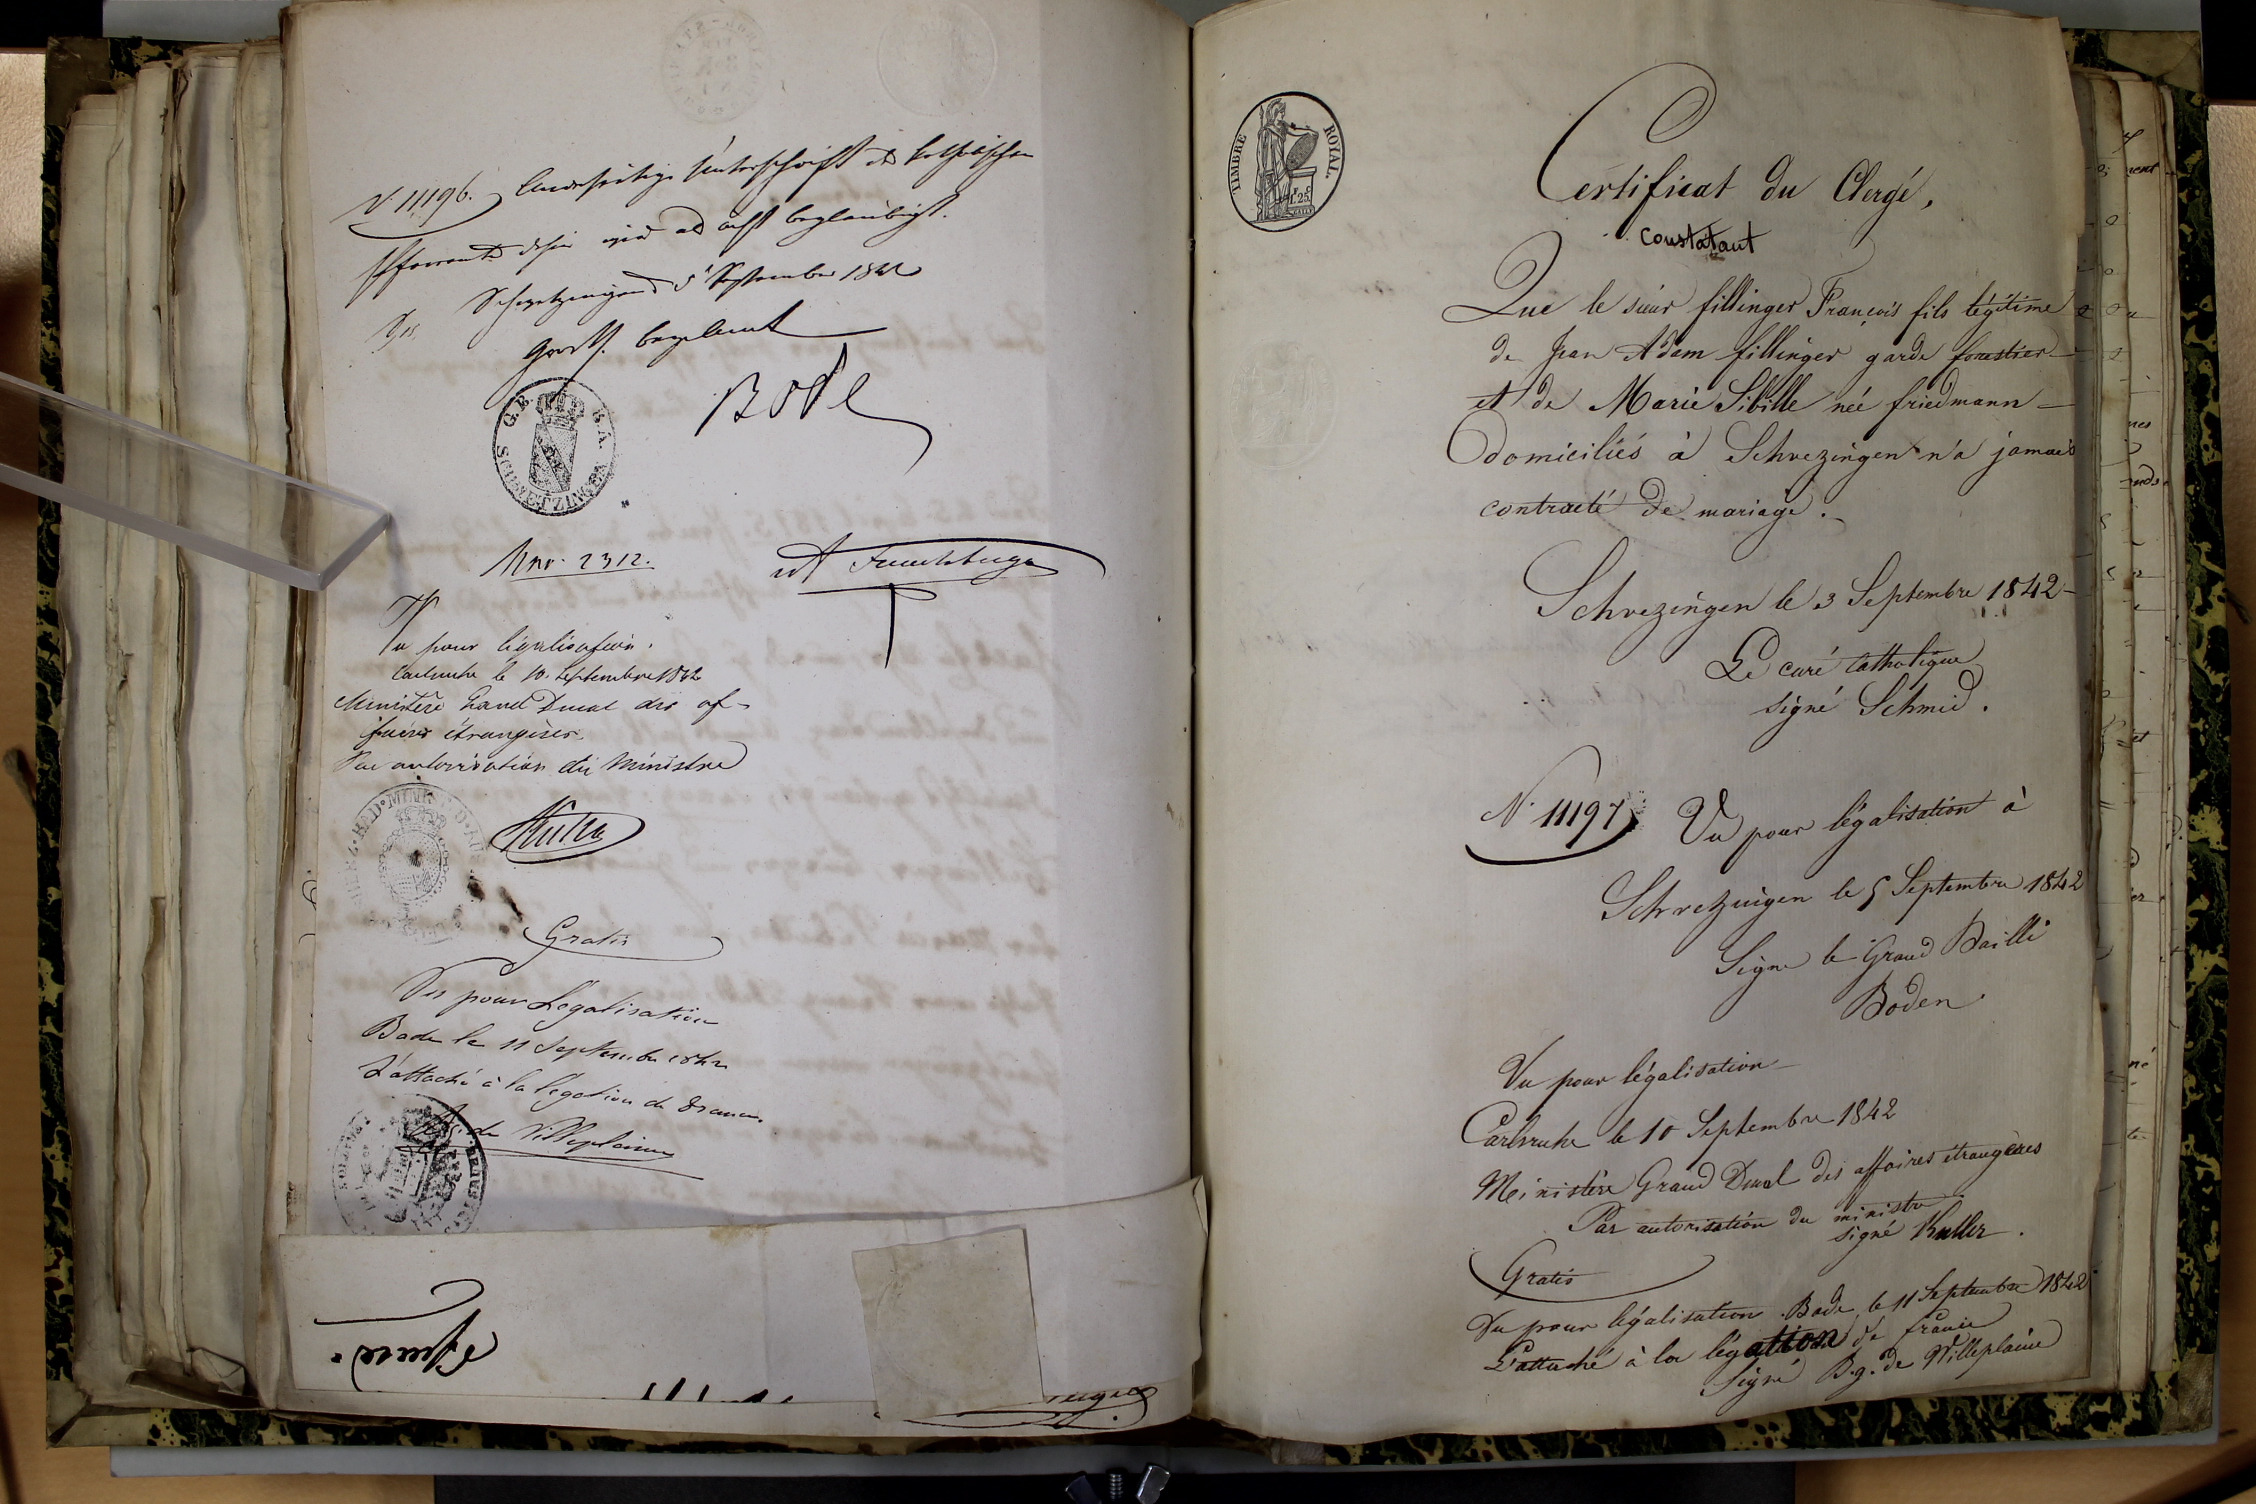 N. 11196. Unterschrift des katholischen
Pfarramts dahier wird beglaubigt.
Schwetzingen d 5t September 1842
Großh. Bezirksamt
G.B. B.A.
SCHWETZINGEN
Nro. 2312.
Vu pour légalisation.
Carlsruhe le 10. Septembre 1842
Ministère Grand Ducal des af-
faires étrangères.
Par autorisation du Ministre
Gratis
Vu pour Légalisation
Bade le 11 Septembre 1842
L'attaché à la légation de France.
B.g. de Villeplaine
TIMBRE ROYAL.
1F. 25C
Certificat du Clergé,
constatant
Que le sieur fillinger François fils légitime
de Jean Adam fillinger garde forestier
et de Marie Sibille née friedmann
Domiciliés à Schvezingen n'a jamais
contracté de mariage.
Schvezingen le 3 Septembre 1842
Le curé Catholique
signé Schmid.
N. 11197 Vu pour légalisation à
Schvetzingen le 5 Septembre 1842
Signé le Grand Bailli
Boden
Vu pour légalisation
Carlsruhe le 10 Septembre 1842
Ministère Grand Ducal des affaires étrangères
Par autorisation du ministre
signé Kuller.
Gratis
Vu pour légalisation Bade, le 11 Septembre 1842
L'attaché à la légation de france
Signé B.g. de Villeplaine